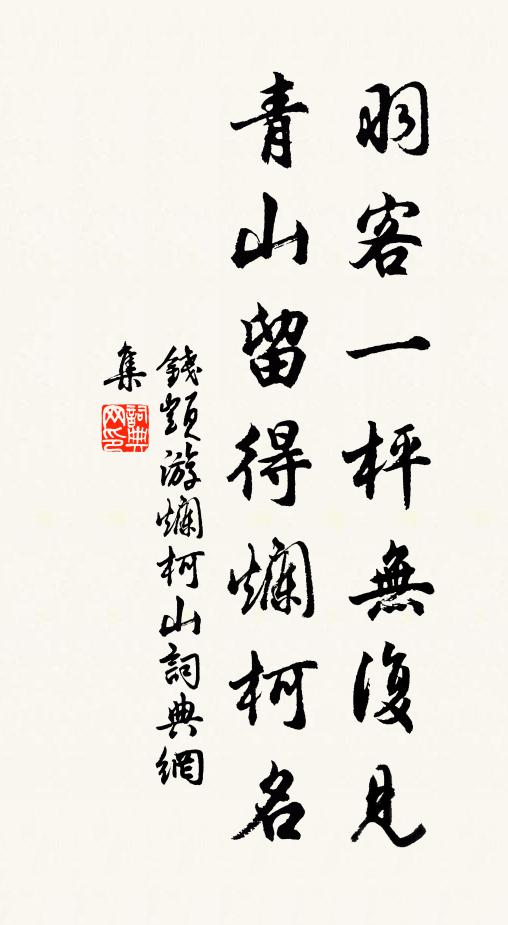 羽客一枰無復見
青山留得爛柯名
錢顗游爛柯山詞典網
集
詞典
网印